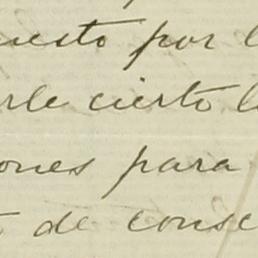 uesto por l
rle cierto l
ones para
de conse